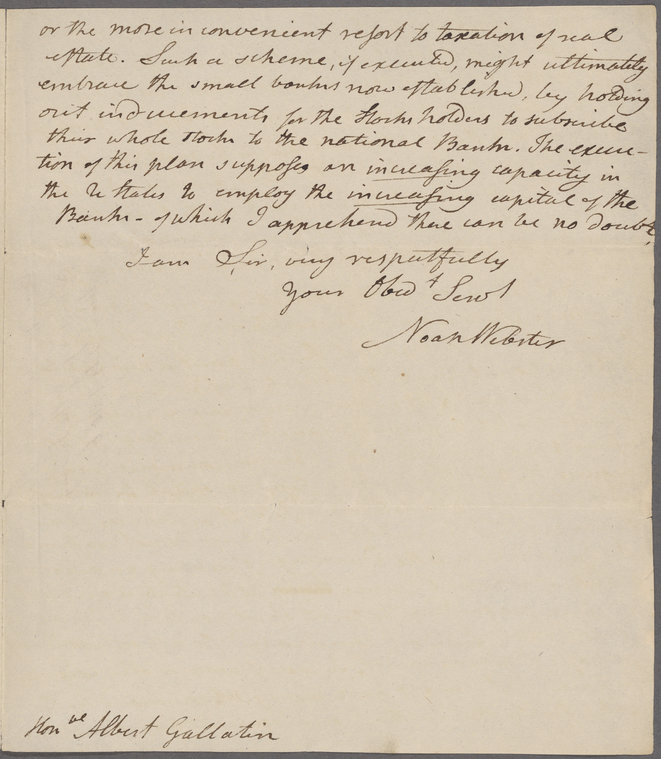 or the more inconvenient resort to taxation of real
estate. Such a scheme, if executed, might ultimately
embrace the small banks now established, by holding
out inducements for the stockholders to subscribe
their whole stock to the national Bank. The execu-
tion of this plan supposes an increasing capacity in
the U States to employ the increasing capital of the
Bank - of which I apprehend there can be no doubt.
I am Sir, very respectfully
your Obedt Servt
Noah Webster
Honble Albert Gallatin